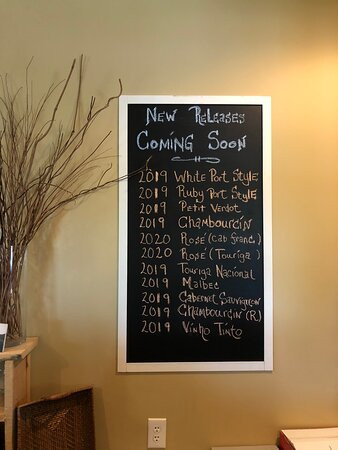 New Releases
Coming Soon
2019 White Port Style
2019 Ruby Port Style
2019 Petit Verdot
2019 Chambourcin
2020 Rosé (Cab franc)
2020 Rosé (Touriga)
2019 Touriga Nacional
2019 Malbec
2019 Cabernet Sauvignon
2019 Chambourcin (R)
2019 Vinho Tinto